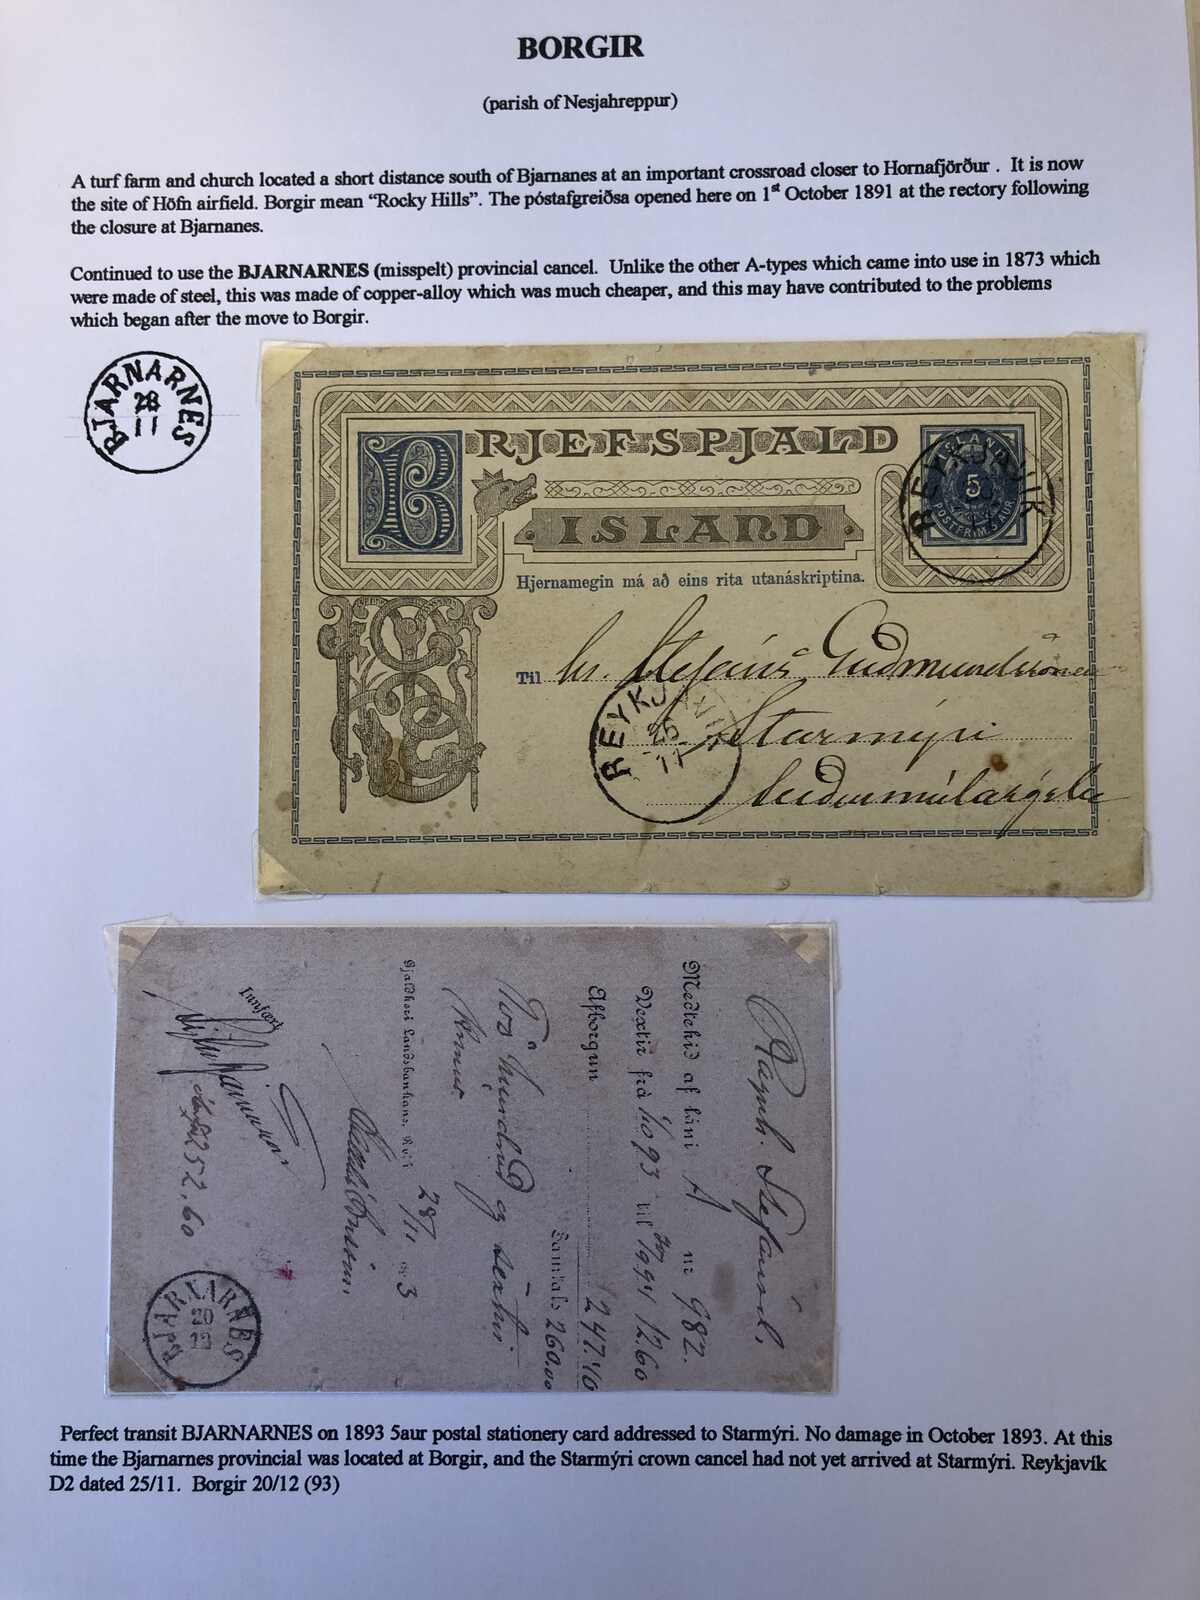 BORGIR
(parish of Nesjahreppur)
A turf farm and church located a short distance south of Bjarnanes at an important crossroad closer to Hornafjörður . It is now
the site of Höfn airfield. Borgir mean “Rocky Hills”. The póstafgreiðsa opened here on 1st October 1891 at the rectory following
the closure at Bjarnanes.
Continued to use the BJARNARNES (misspelt) provincial cancel. Unlike the other A-types which came into use in 1873 which
were made of steel, this was made of copper-alloy which was much cheaper, and this may have contributed to the problems
which began after the move to Borgir.
BJARNARNES
28
11
BRJEFSPJALD
ISLAND
ISLAND
5
POSTFRIM. 5 AUR
REYKJAVIK
Hjernamegin má að eins rita utanáskriptina.
Til hr. Stefáns Guðmundssonar
Starmýri
Suðurmúlasýslu
REYKJAVIK
25
11
Ragnh. Stefánsd.
Meðtekið af láni A nr 982.
Vextir frá 93 til 1994 12.60
Afborgun 247.40
Samtals 260.00
Tvö hundruð og sextíu
Krónur
Gjaldkeri Landsbankans, Rvík 28/11 93
Innfært
252.60
BJARNARNES
20
12
Perfect transit BJARNARNES on 1893 5aur postal stationery card addressed to Starmýri. No damage in October 1893. At this
time the Bjarnarnes provincial was located at Borgir, and the Starmýri crown cancel had not yet arrived at Starmýri. Reykjavík
D2 dated 25/11. Borgir 20/12 (93)